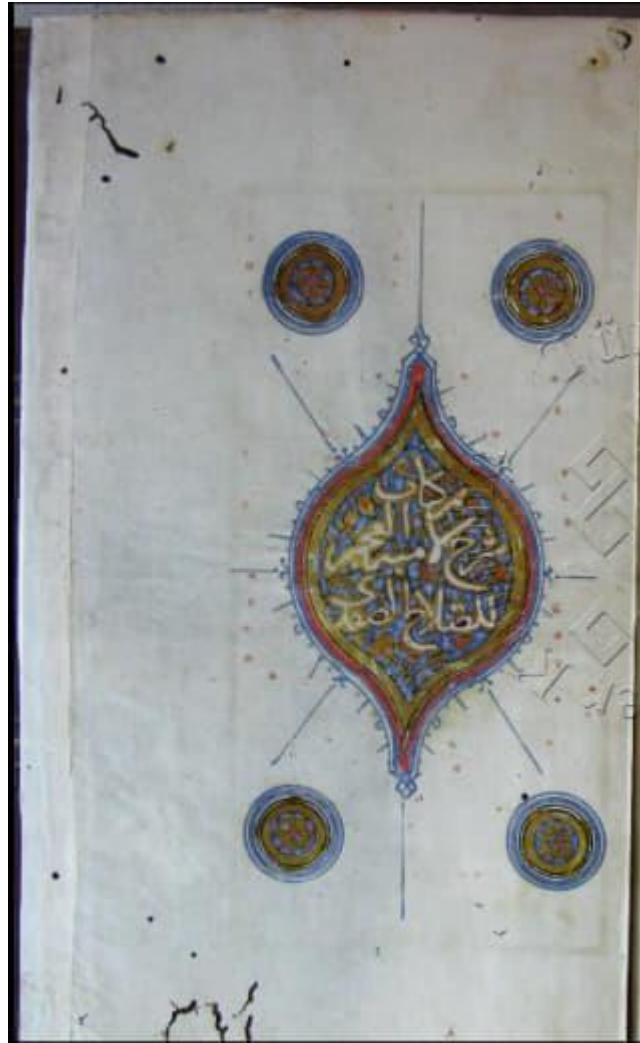 كتاب
شرح لامية العجم
للصلاح الصفدي